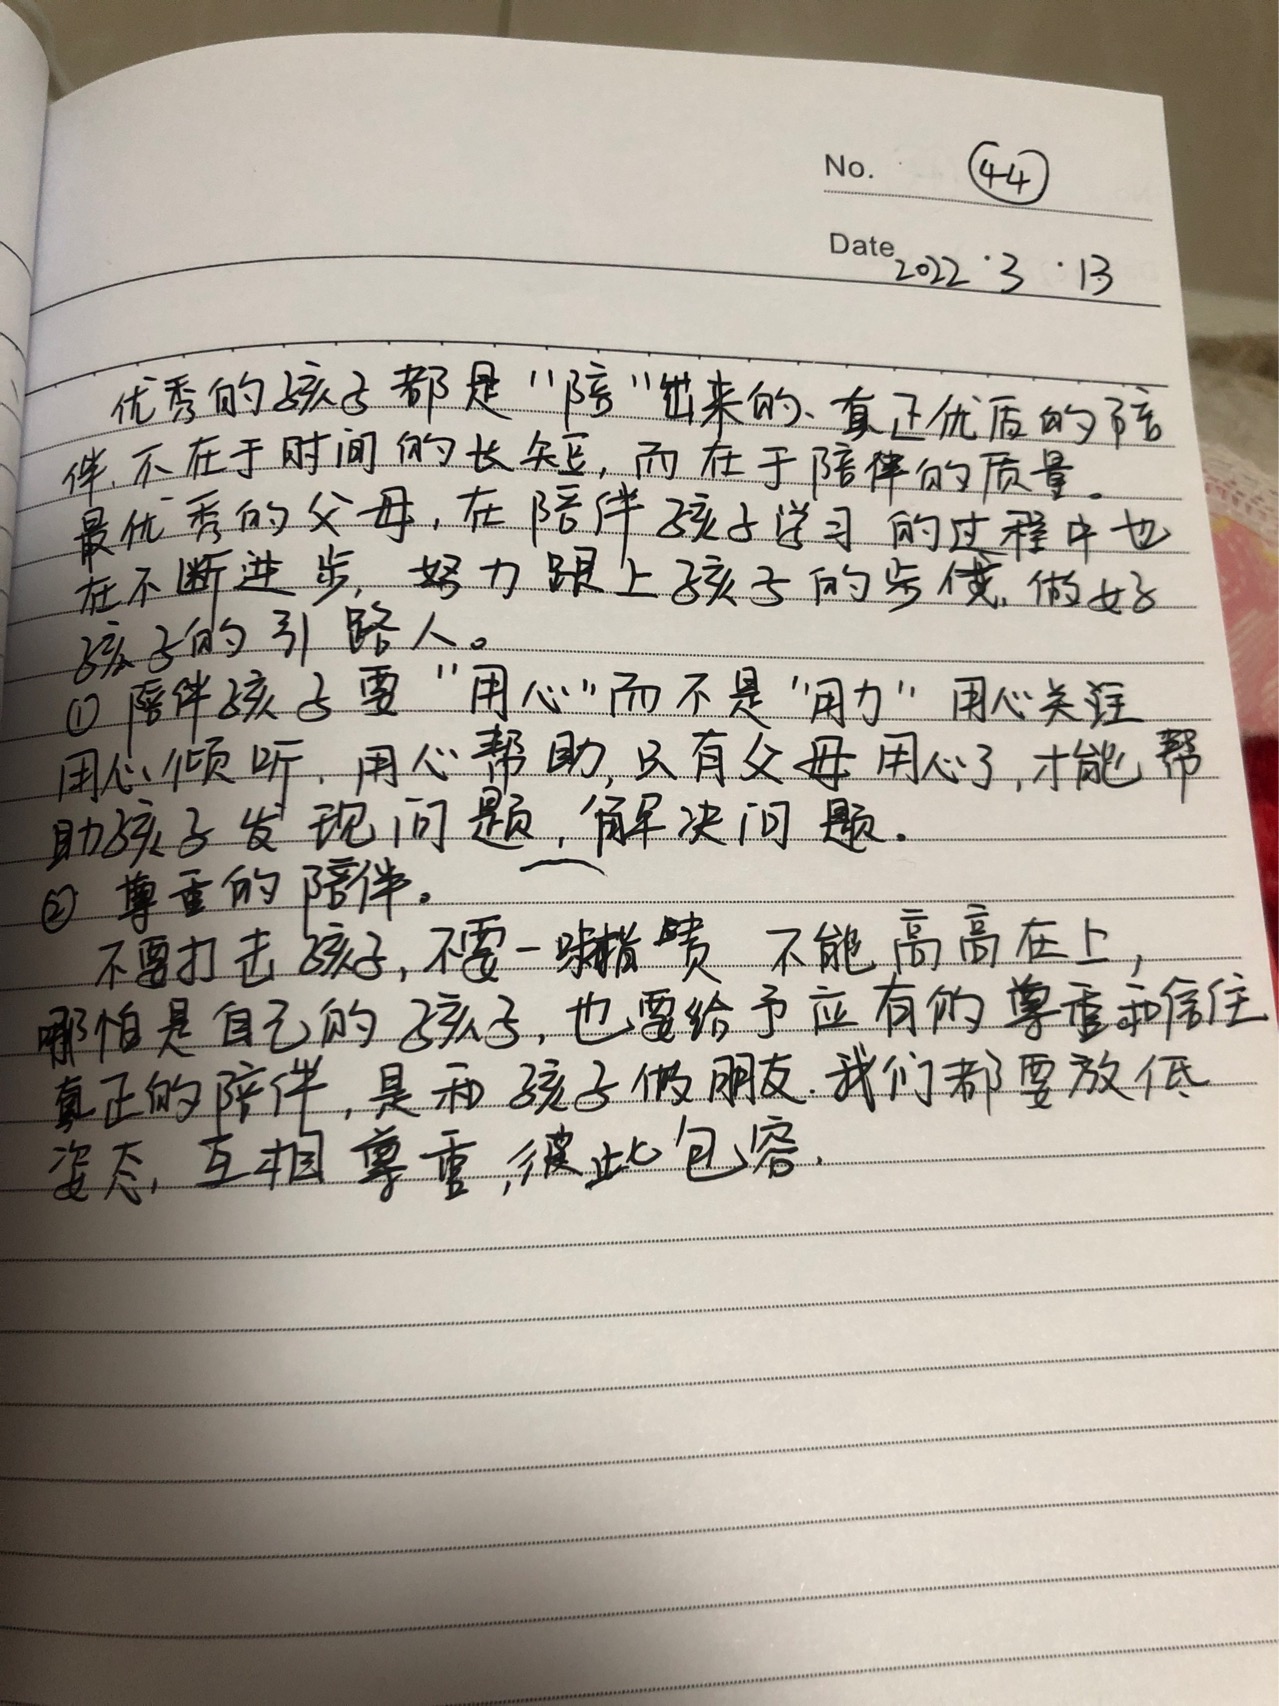 No. ㊹
Date 2022·3·13
优秀的孩子都是"陪"出来的、真正优质的陪
伴、不在于时间的长短,而在于陪伴的质量。
最优秀的父母,在陪伴孩子学习的过程中也
在不断进步,努力跟上孩子的步伐、做好
孩子的引路人。
① 陪伴孩子要"用心"而不是"用力" 用心关注
用心倾听、用心帮助,只有父母用心了,才能帮
助孩子发现问题、解决问题。
② 尊重的陪伴。
不要打击孩子,不要一味指责 不能高高在上,
哪怕是自己的孩子,也要给予应有的尊重和信任
真正的陪伴,是和孩子做朋友.我们都要放低
姿态,互相尊重,彼此包容.